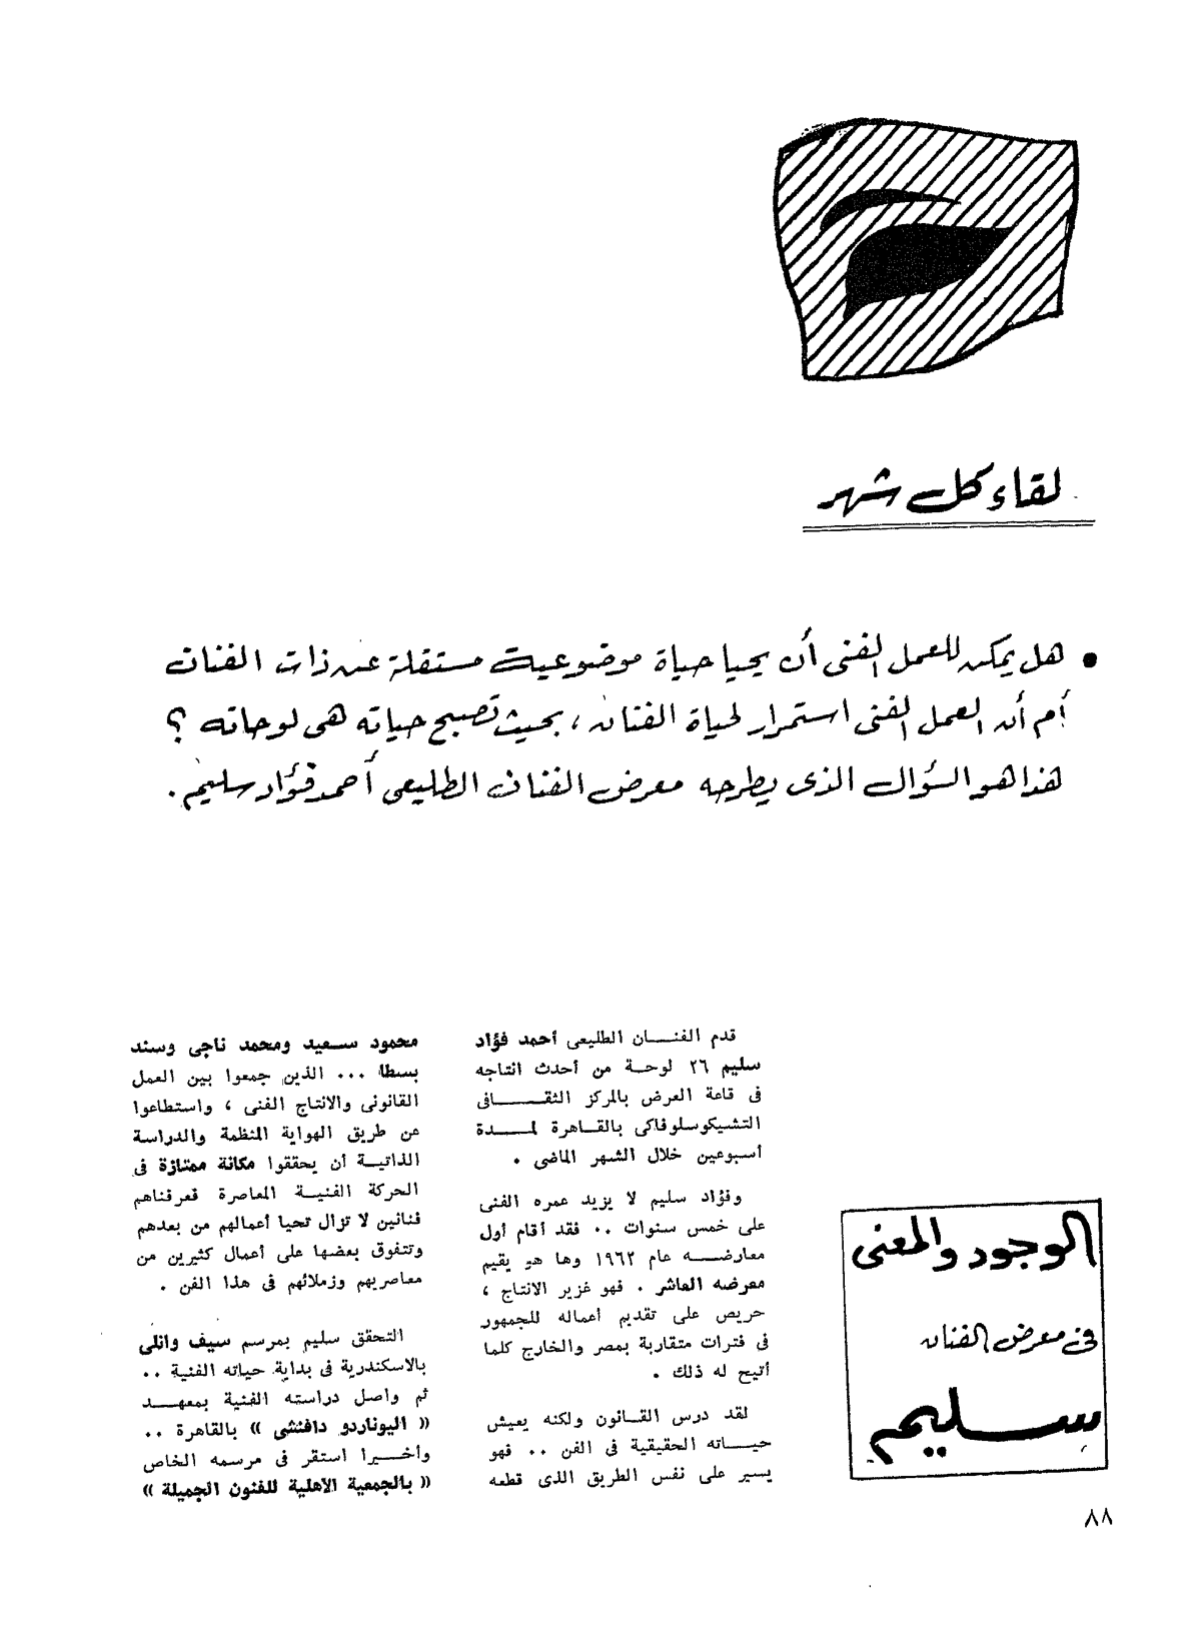 لقاء كل شهر
• هل يمكن للعمل الفنى أن يحيا حياة موضوعية مستقلة عن ذات الفنان
أم أن العمل الفنى استمرار لحياة الفنان ، بحيث تصبح حياته هى لوحاته ؟
هذا هو السؤال الذى يطرحه معرض الفنان الطليعى أحمد فؤاد سليم .
الوجود والمعنى
فى معرض الفنان
سليم
قدم الفنـــان الطليعى أحمد فؤاد
سليم ٢٦ لوحـة من أحدث انتاجه
فى قاعة العرض بالمركز الثقـــــافى
التشيكوسلوفاكى بالقــاهرة لمـــــدة
أسبوعين خلال الشهر الماضى .
وفؤاد سليم لا يزيد عمره الفنى
على خمس سنوات .. فقد أقام أول
معارضـــه عام ١٩٦٢ وها هو يقيم
معرضه العاشر . فهو غزير الانتاج ،
حريص على تقديم أعماله للجمهور
فى فترات متقاربة بمصر والخارج كلما
أتيح له ذلك .
لقد درس القــانون ولكنه يعيش
حيـــاته الحقيقية فى الفن .. فهو
يسير على نفس الطريق الذى قطعه
محمود ســعيد ومحمد ناجى وسند
بسطا ... الذين جمعوا بين العمل
القانونى والانتاج الفنى ، واستطاعوا
عن طريق الهواية المنظمة والدراسة
الذاتيـــة أن يحققوا مكانة ممتازة فى
الحركة الفنيــة المعاصرة فعرفناهم
فنانين لا تزال تحيا أعمالهم من بعدهم
وتتفوق بعضها على أعمال كثيرين من
معاصريهم وزملائهم فى هذا الفن .
التحقق سليم بمرسم سيف وانلى
بالاسكندرية فى بداية حياته الفنية ..
ثم واصل دراسته الفنية بمعهـــد
« اليوناردو دافنشى » بالقاهرة ..
وأخـــيرا استقر فى مرسمه الخاص
« بالجمعية الاهلية للفنون الجميلة »
٨٨